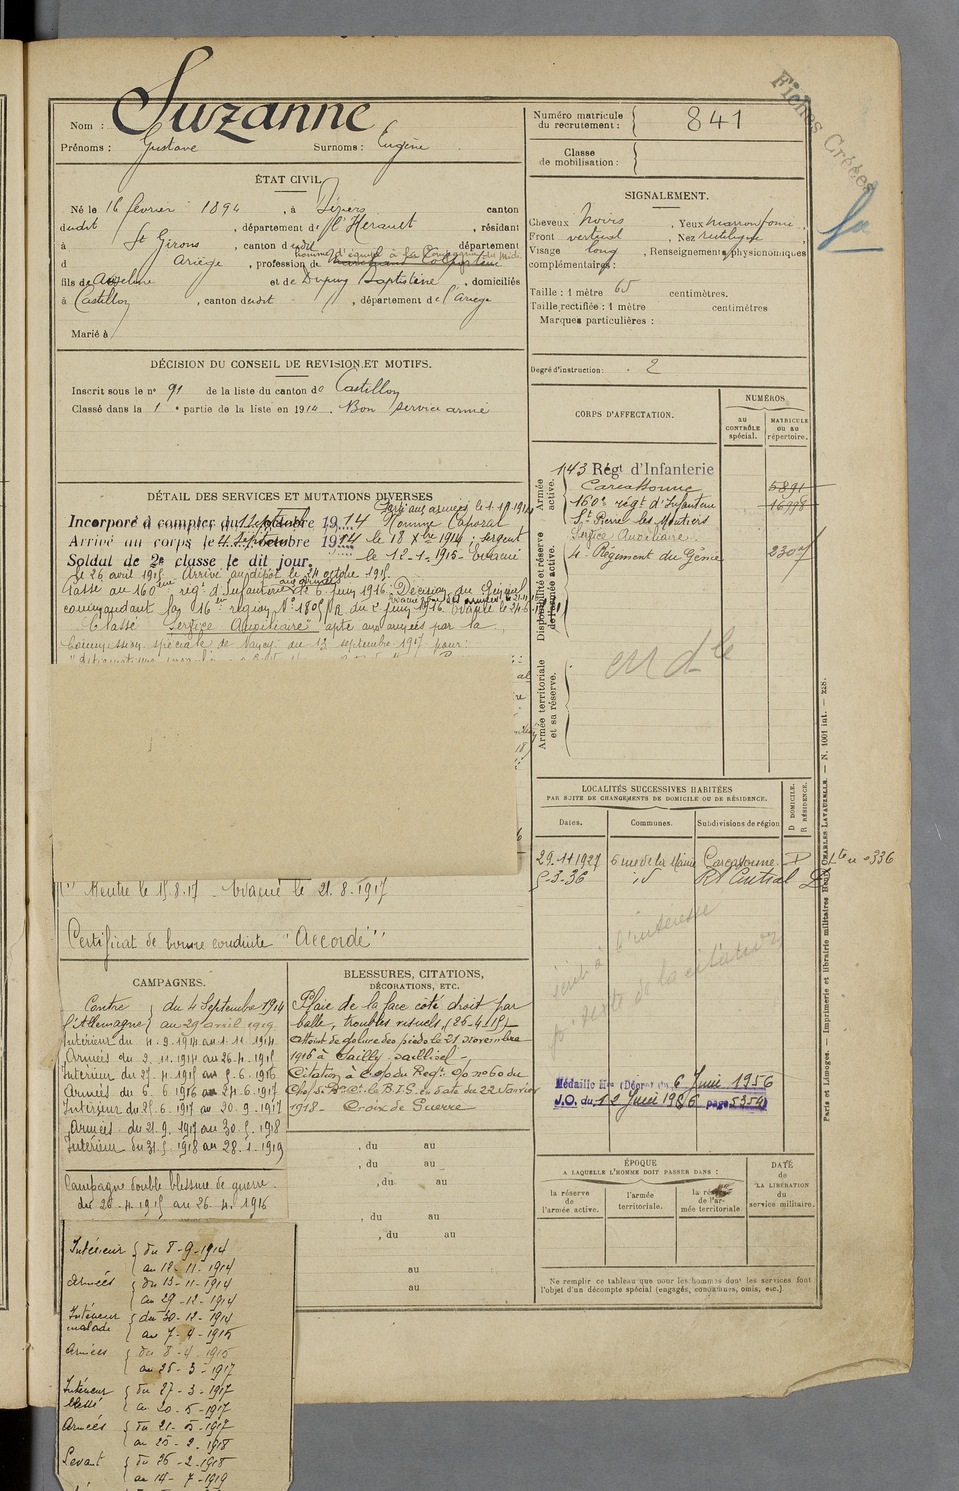 Fiches Créées
Nom : Suzanne
Prénoms : Gustave Surnoms : Eugène
ÉTAT CIVIL
Né le 16 février 1894, à canton
dudit, département de l'Herault, résidant
à St Girons, canton dudit département
homme d'équipe à la Compagnie du Midi
d Ariège, profession de
fils de Anselme et de Dupuy Baptistine, domiciliés
à Castillon, canton dudit, département de l'Ariège
Marié à
DÉCISION DU CONSEIL DE REVISION ET MOTIFS.
Inscrit sous le n° 91 de la liste du canton de Castillon
Classé dans la 1e partie de la liste en 1914. Bon service armé
DÉTAIL DES SERVICES ET MUTATIONS DIVERSES
Parti aux armées le
Incorporé à compter du 1914 Nommé Caporal
Arrivé au corps le 4 1914 le 18 Xbre 1914 ; sergent
Soldat de 2e classe le dit jour. le 12-1-1915- Evacué
le 26 avril 1915. Arrivé au dépôt le 24 octobre 1915.
Passé au 160ème rég. d'Infanterie le 6 juin 1916. Décision du Général
commandant la 16e région, N° 1805/R du 2 juin 1916. Evacué le
Classé Service Auxiliaire apte aux armées par la
Commission spéciale de Nancy du 13 septembre 1917 pour:
Rentré le 15.8.17 - Evacué le 21.8.1917
Certificat de bonne conduite "Accordé"
CAMPAGNES.
Contre l'Allemagne
du 4 Septembre 1914
au 29 avril 1919.
Intérieur du 4.9.1914 au 1.11.1914
Armées du 2.11.1914 au 26.4.1915
Intérieur du 27.4.1915 au 5.6.1916
Armées du 6.6.1916 au 24.6.1917
Intérieur du 25.6.1917 au 20.9.1917
Armées du 21.9.1917 au 30.5.1918
Intérieur du 31.5.1918 au 28.1.1919
Campagne double blessure de guerre
du 26.4.1915 au 26.4.1916
Intérieur du 8-9-1914
au 12-11-1914
Armées du 13-11-1914
au 29-12-1914
Intérieur malade du 30-12-1914
au 7-4-1915
Armées du 8-4-1915
au 26-3-1917
Intérieur blessé du 27-3-1917
au 20-5-1917
Armées du 21-5-1917
au 25-2-1918
Levant du 26-2-1918
au 14-7-1919
BLESSURES, CITATIONS,
DÉCORATIONS, ETC.
Plaie de la face côté droit par
balle, troubles visuels, (26-4-15)-
Atteint de gelure des pieds le 21 novembre
1916 à Sailly-Saillisel-
Citation à l'o/du Régt. o/ n° 60 du
22 Janvier
1918- Croix de Guerre
, du au
, du au
, du au
, du au
, du au
au
au
Numéro matricule
du recrutement : 841
Classe
de mobilisation :
SIGNALEMENT.
Cheveux noirs, Yeux marron foncé,
Front vertical, Nez rectiligne,
Visage long, Renseignements physionomiques
complémentaires :
Taille : 1 mètre 65 centimètres.
Taille rectifiée : 1 mètre centimètres
Marques particulières :
Degré d'instruction : 2
CORPS D'AFFECTATION.
NUMÉROS
au
CONTRÔLE
spécial.
MATRICULE
OU AU
répertoire.
Armée
active.
143 Régt d'Infanterie
Carcassonne 5891
160e régt d'Infanterie 16998
St Pierre les Moutiers
Disponibilité et réserve
de l'armée active.
Service Auxiliaire
4e Régiment du Génie 2307
Armée territoriale
et sa réserve.
LOCALITÉS SUCCESSIVES HABITÉES
PAR SUITE DE CHANGEMENTS DE DOMICILE OU DE RÉSIDENCE.
Dates.
Communes.
Subdivisions de région
D DOMICILE.
R RÉSIDENCE.
29.11.1927 6 rue de la Mairie Carcassonne D
5-3-36 id Rt Central D
écrit à l'intéressé
texte de la citation
Médaille Mre (Décret du 6 Juin 1956
J.O. du 12 Juin 1956 page 5359)
ÉPOQUE
A LAQUELLE L'HOMME DOIT PASSER DANS :
la réserve
de
l'armée active.
l'armée
territoriale.
la réserve
de l'ar-
mée territoriale
DATE
de
LA LIBÉRATION
du
service militaire.
Ne remplir ce tableau que pour les hommes dont les services font
l'objet d'un décompte spécial (engagés, condamnés, omis, etc.)
Paris et Limoges. — Imprimerie et librairie militaires Henri CHARLES-LAVAUZELLE. — N. 1001 int. — 218.